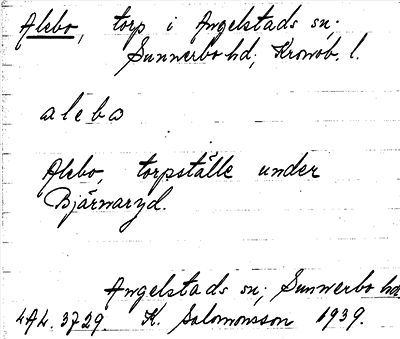 Alebo, torp i Angelstads sn;
Sunnerbo hd; Kronob. l.
alebo
Alebo, torpställe under
Bjärnaryd.
Angelstads sn; Sunnerbo hd.
4A4. 3729. K. Salomonsson 1939.